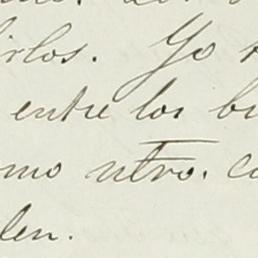 irlos. Yo
entre los bu
mo ntro. co
len.